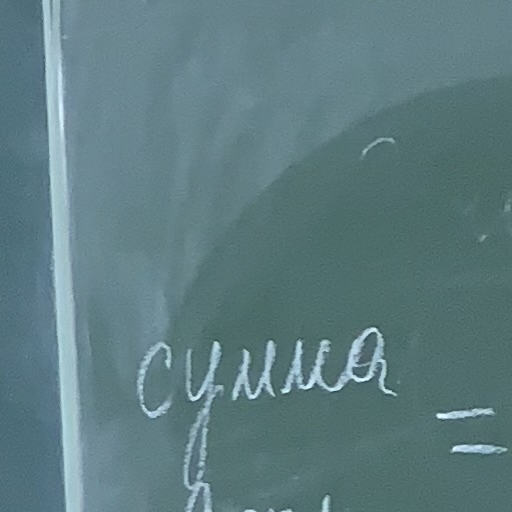 сумма =